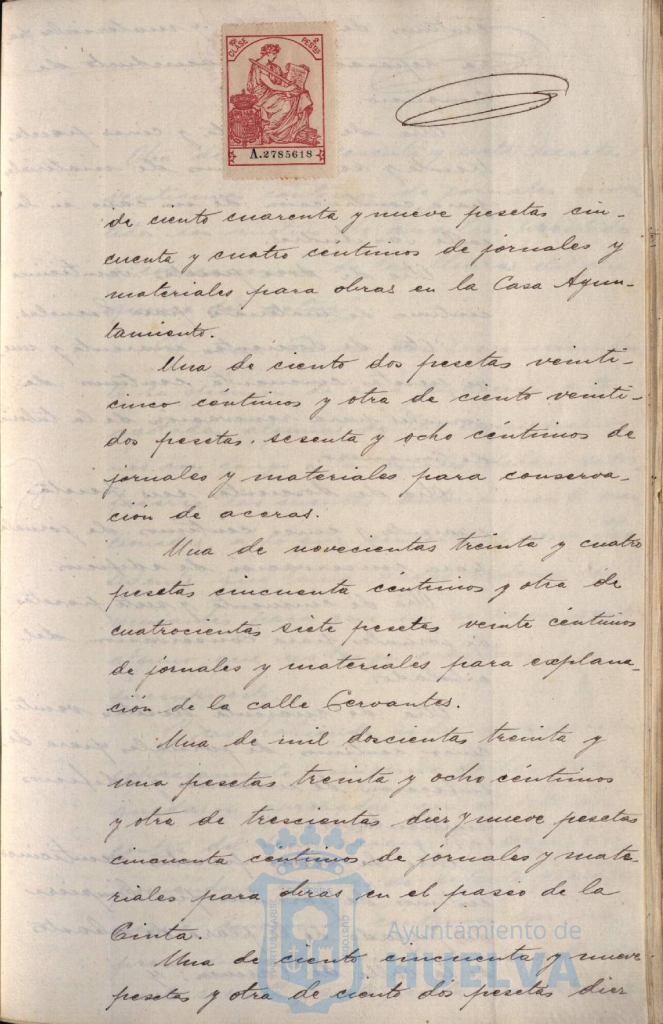 10ª CLASE
2 PESTAS
A.2785618
de ciento cuarenta y nueve pesetas cin-
cuenta y cuatro céntimos de jornales y
materiales para obras en la Casa Ayun-
tamiento.
Una de ciento dos pesetas veinti-
cinco céntimos y otra de ciento veinti-
dos pesetas. sesenta y ocho céntimos de
jornales y materiales para conserva-
ción de aceras.
Una de novecientas treinta y cuatro
pesetas cincuenta céntimos y otra de
cuatrocientas siete pesetas veinte céntimos
de jornales y materiales para explana-
ción de la calle Cervantes.
Una de mil doscientas treinta y
una pesetas treinta y ocho céntimos
y otra de trescientas diez y nueve pesetas
cincuenta céntimos de jornales y mate-
riales para obras en el paseo de la
Cinta.
Una de ciento cincuenta y nueve
pesetas y otra de ciento dos pesetas diez
Ayuntamiento de
HUELVA